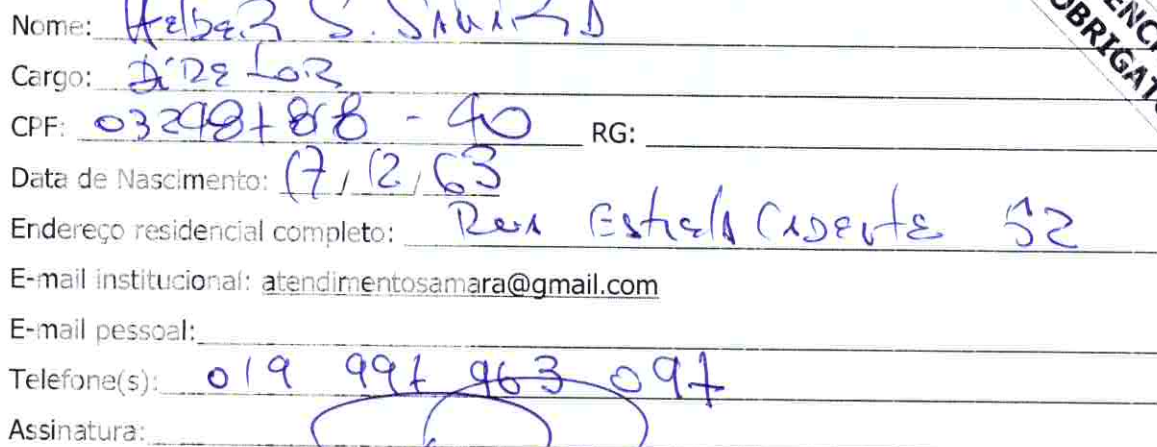 Nome: Helber S. 
Cargo: DiRetoR
CPF: 032987868-40 RG:
Data de Nascimento: 17/12/63
Endereço residencial completo: Rua Estrela Cadente 52
E-mail institucional: atendimentosamara@gmail.com
E-mail pessoal:
Telefone(s): 019 997 963 097
Assinatura: